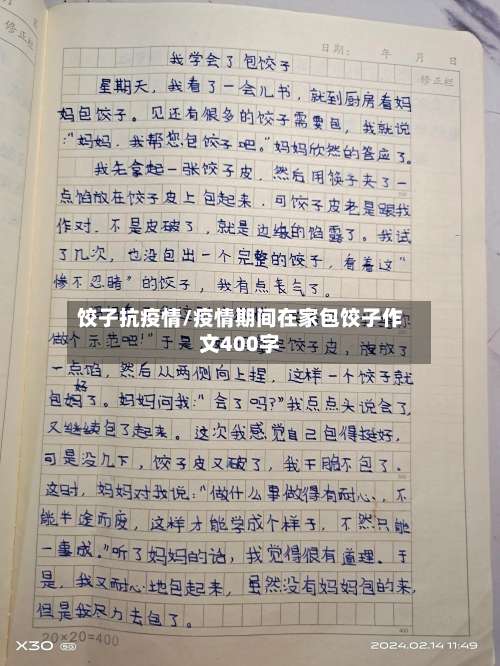 日期： 年 月 日
修正栏
修正栏
我学会了包饺子
星期天，我看了一会儿书，就到厨房看妈
妈包饺子。见还有很多的饺子需要包，我就说
：“妈妈，我帮您包饺子吧。”妈妈欣然的答应了。
我先拿起一张饺子皮，然后用筷子夹了一
点馅放在饺子皮上包起来，可饺子皮老是跟我
作对，不是皮破了，就是边缘的馅露了。我试
了几次，也没包出一个完整的饺子，看着这“
惨不忍睹”的饺子，我有点丧气了。
饺子抗疫情/疫情期间在家包饺子作
文400字
做个示范吧！”于是
饺子皮，放了
一点馅，然后从两侧向上捏，这样一个饺子就
包好了。妈妈问我：“会了吗？”我点点头说会了，
又继续包了起来。这次我感觉自己包得挺好，
可是没几下，饺子皮又破了，我干脆不包了。
这时，妈妈对我说：“做什么事做得有耐心，不
能半途而废，这样才能学成个样子，不然只能
一事成。”听了妈妈的话，我觉得很有道理。于
是，我又耐心地包起来，虽然没有妈妈包的来，
但是我尽力去包了。
20×20=400
X30
2024.02.14 11:49